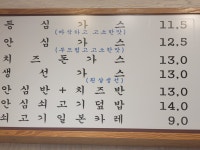 등심가스 11.5
(바삭하고 고소한맛)
안심가스 12.5
(부드럽고 고소한맛)
치즈돈가스 13.0
생선가스 13.0
(흰살생선)
안심반+치즈반 13.0
안심쇠고기덮밥 14.0
쇠고기일본카레 9.0